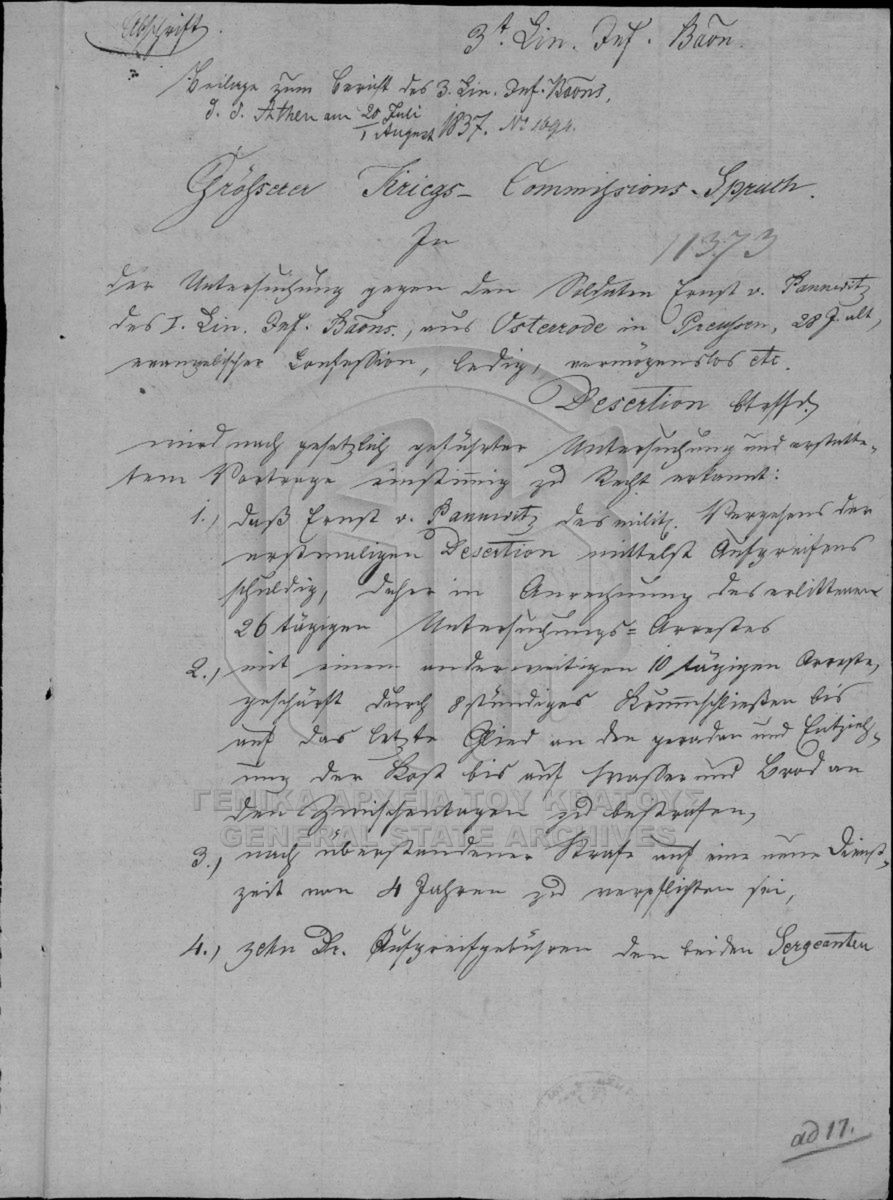 Abschrift
3t. Lin. Inf. Baon.
Beilage zum Bericht des 3. Lin. Inf. Baons,
d. d. Athen am 20 Juli
1 August 1837. No 1094.
Grösserer Kriegs-Commissions-Spruch.
In
11373
der Untersuchung gegen den Soldaten Ernst v. Pannwitz
des I. Lin. Inf. Baons., aus Osterrode in Preussen, 28 J. alt,
evangelischer Confession, ledig, vermögenslos etc.
Desertion btrffd.
wird nach gesetzlich geführter Untersuchung und erstatte-
tem Vortrage einstimmig zu Recht erkannt:
1., daß Ernst v. Pannwitz des milit. Vergehens der
erstmaligen Desertion mittelst Aufgreifens
schuldig, daher in Anrechnung des erlittenen
26 tägigen Untersuchungs=Arrestes
2., mit einem anderweitigen 10 tägigen Arreste,
geschärft durch 8 stündiges Krummschließen bis
auf das letzte Glied an den geraden und Entzieh-
ung der Kost bis auf Wasser und Brod an
den Zwischentagen zu bestrafen,
3., nach überstandener Strafe auf eine neue Dienst-
zeit von 4 Jahren zu verpflichten sei,
4., zehn Dr. Aufgreifgebühren den beiden Sergeanten
ΓΕΝΙΚΑ ΑΡΧΕΙΑ ΤΟΥ ΚΡΑΤΟΥΣ
GENERAL STATE ARCHIVES
ad 17.